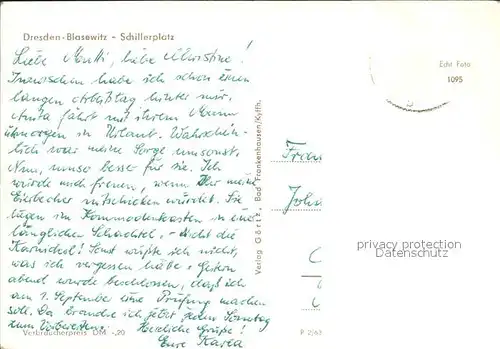 Dresden-Blasewitz - Schillerplatz
Liebe Mutti, liebe Christine!
Inzwischen habe ich schon einen
langen Arbeitstag hinter mir.
Anita fährt mit ihrem Mann
übermorgen in Urlaub. Wahrschein-
lich war meine Sorge umsonst.
Nun, umso besser für sie. Ich
würde mich freuen, wenn Ihr meine
Eierbecher mitschicken würdet. Sie
liegen im Kommodenkasten in einer
länglichen Schachtel, - nicht die
Karnickel! Sonst wüßte ich nicht,
was ich vergessen habe. Gestern
abend wurde beschlossen, daß ich
am 1. September eine Prüfung machen
soll. Da brauche ich jetzt jeden Sonntag
zum Vorbereiten. Herzliche Grüße!
Eure Karla
Verbraucherpreis DM -,20
Verlag Görtz, Bad Frankenhausen/Kyffh.
Echt Foto
1095
Frau
Joh
privacy protection
Datenschutz
P 2/62